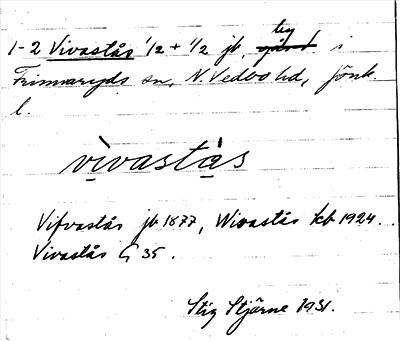 1-2 Vivastås 1/2 + 1/2 jb, by i
Frinnaryds sn, N. Vedbo hd, Jönk.
l.
vivastås
Vifvastås jb 1877, Wivastås kb 1924.
Vivastås G 35.
Stig Stjärne 1931.